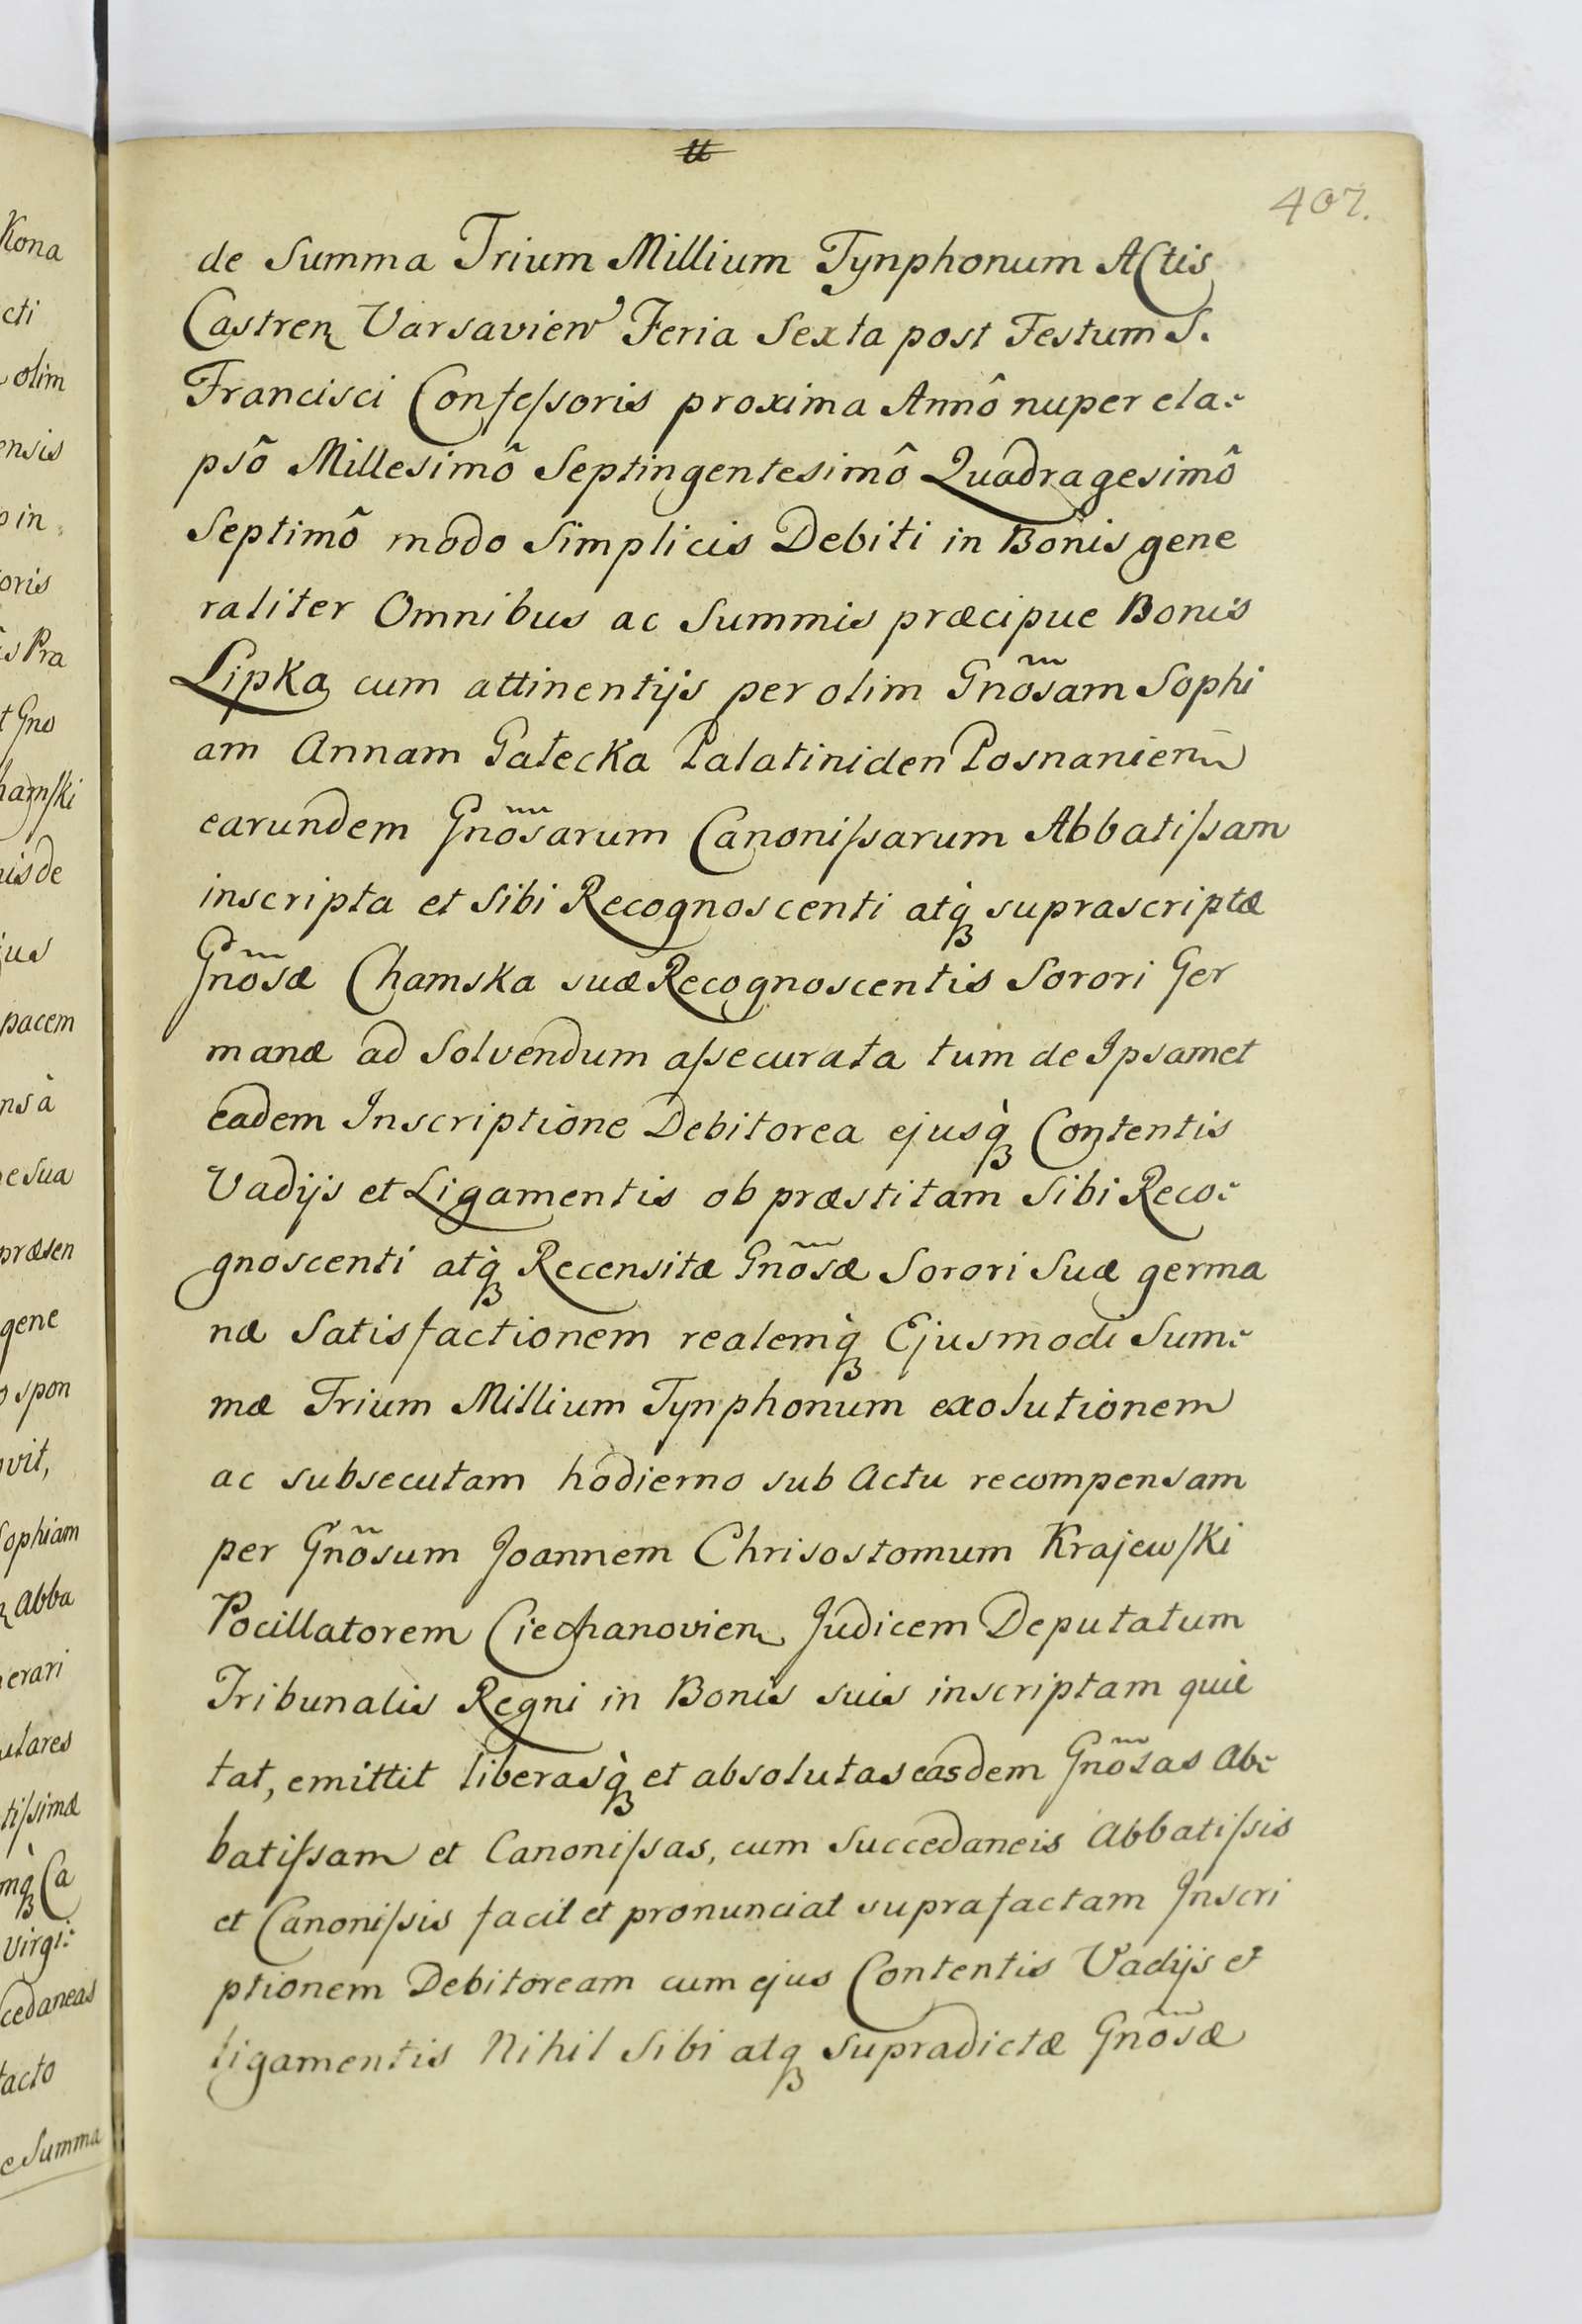 tt
407.
de Summa Trium Millium Tynphonum Actis
Castren Varsavien Feria Sexta post Festum S.
Francisci Confeſsoris proxima Annô nuper ela:
psô Millesimô Septingentesimô Quadragesimô
Septimô modo Simplicis Debiti in Bonis gene
raliter Omnibus ac Summis præcipue Bonis
Lipka cum attinentijs per olim Gnõsam Sophi
am Annam Gałecka Palatiniden Posnanien
earundem Gnõsarum Canoniſsarum Abbatiſsam
inscripta et Sibi Recognoscenti atq̀ suprascriptæ
Gnõsæ Chamska suæ Recognoscentis Sorori Ger
manæ ad Solvendum aſsecurata tum de Ipsamet
eadem Inscriptione Debitorea ejusq̀ Contentis
Vadijs et Ligamentis ob præstitam Sibi Reco:
gnoscenti atq̀ Recensitæ Gnõsæ Sorori Suæ germa
næ Satisfactionem realemq̀ Ejusmodi Sum:
mæ Trium Millium Tynphonum exolutionem
ac subsecutam hodierno sub Actu recompensam
per Gnõsum Joannem Chrisostomum Krajewſki
Pocillatorem Ciechanovien Judicem Deputatum
Tribunalis Regni in Bonis suis inscriptam quie
tat, emittit liberasq̀ et absolutas easdem Gnõsas Ab:
batiſsam et Canoniſsas, cum Succedaneis Abbatiſsis
et Canoniſsis facit et pronunciat suprafactam Inscri
ptionem Debitoream cum ejus Contentis Vadijs et
ligamentis Nihil Sibi atq supradictæ Gnõsæ
Kona
cti
olim
ensis
in
oris
s Pra
t Gno
hamſki
nis de
jus
pacem
ns à
e sua
præsen
gene
spon
vit,
Sophiam
Abba
erari
ulares
tiſsimæ
mq̀ Ca
Virgi:
cedaneas
tacto
e Summa